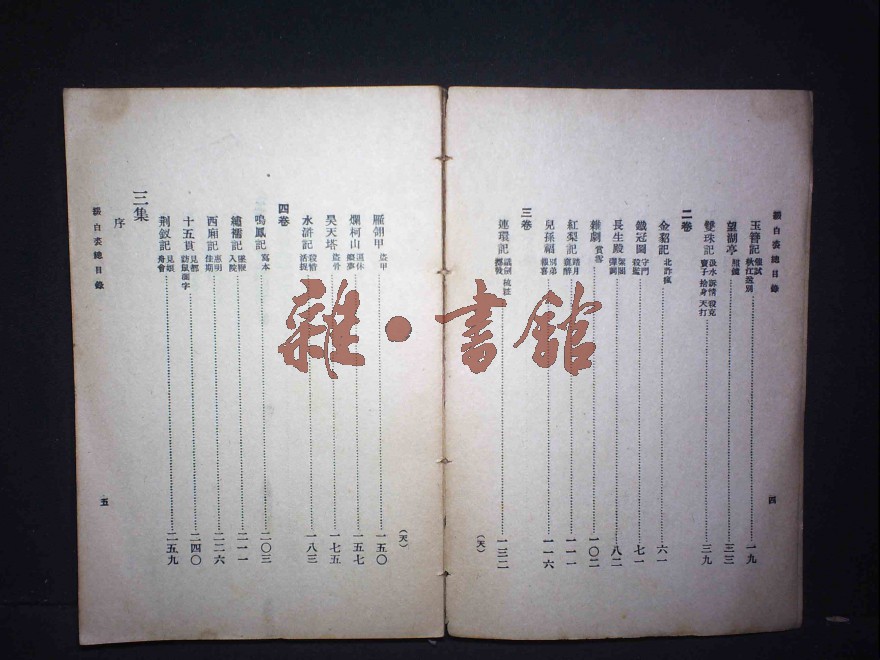 綴白裘總目錄
玉簪記 催試 秋江送別 一九
望湖亭 照鏡 三三
雙珠記 汲水 訴情 殺克 賣子 捨身 天打 三九
二卷
金貂記 北詐瘋 六一
鐵冠圖 守門 殺監 七一
長生殿 絮閣 彈詞 八二
雜劇 賞雪 一〇二
紅梨記 踏月 窺醉 一一一
兒孫福 別弟 報喜 一一六
三卷
連環記 議劍 梳粧 擲戟 一三二
四
(天)
雁翎甲 盜甲 一五〇
爛柯山 逼休 癡夢 一五七
昊天塔 盜骨 一七五
水滸記 殺惜 活捉 一八三
四卷
鳴鳳記 寫本 二〇三
繡襦記 墜鞭 入院 二一一
西廂記 惠明 佳期 二二六
十五貫 見都 訪鼠測字 二四〇
荆釵記 見娘 舟會 二五九
三集
序
綴白裘總目錄
五
(天)
雜·書館